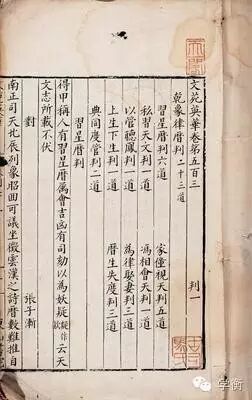 文苑英華卷第五百三
乾象律曆判二十三道 判一
習星曆判六道 家僮視天判五道
私習天文判一道 馮相會天判一道
以管聽鳳判一道 為律娶妻判三道
上生下生判一道 曆生失度判三道
典同度管判二道
習星曆判
得甲稱人有習星曆屬會吉凶有司劾以為妖疑作云天
文志所載不伏
對 張子漸
南正司天北辰列象昭回可議坐徵雲漢之詩曆數難推自
学衡